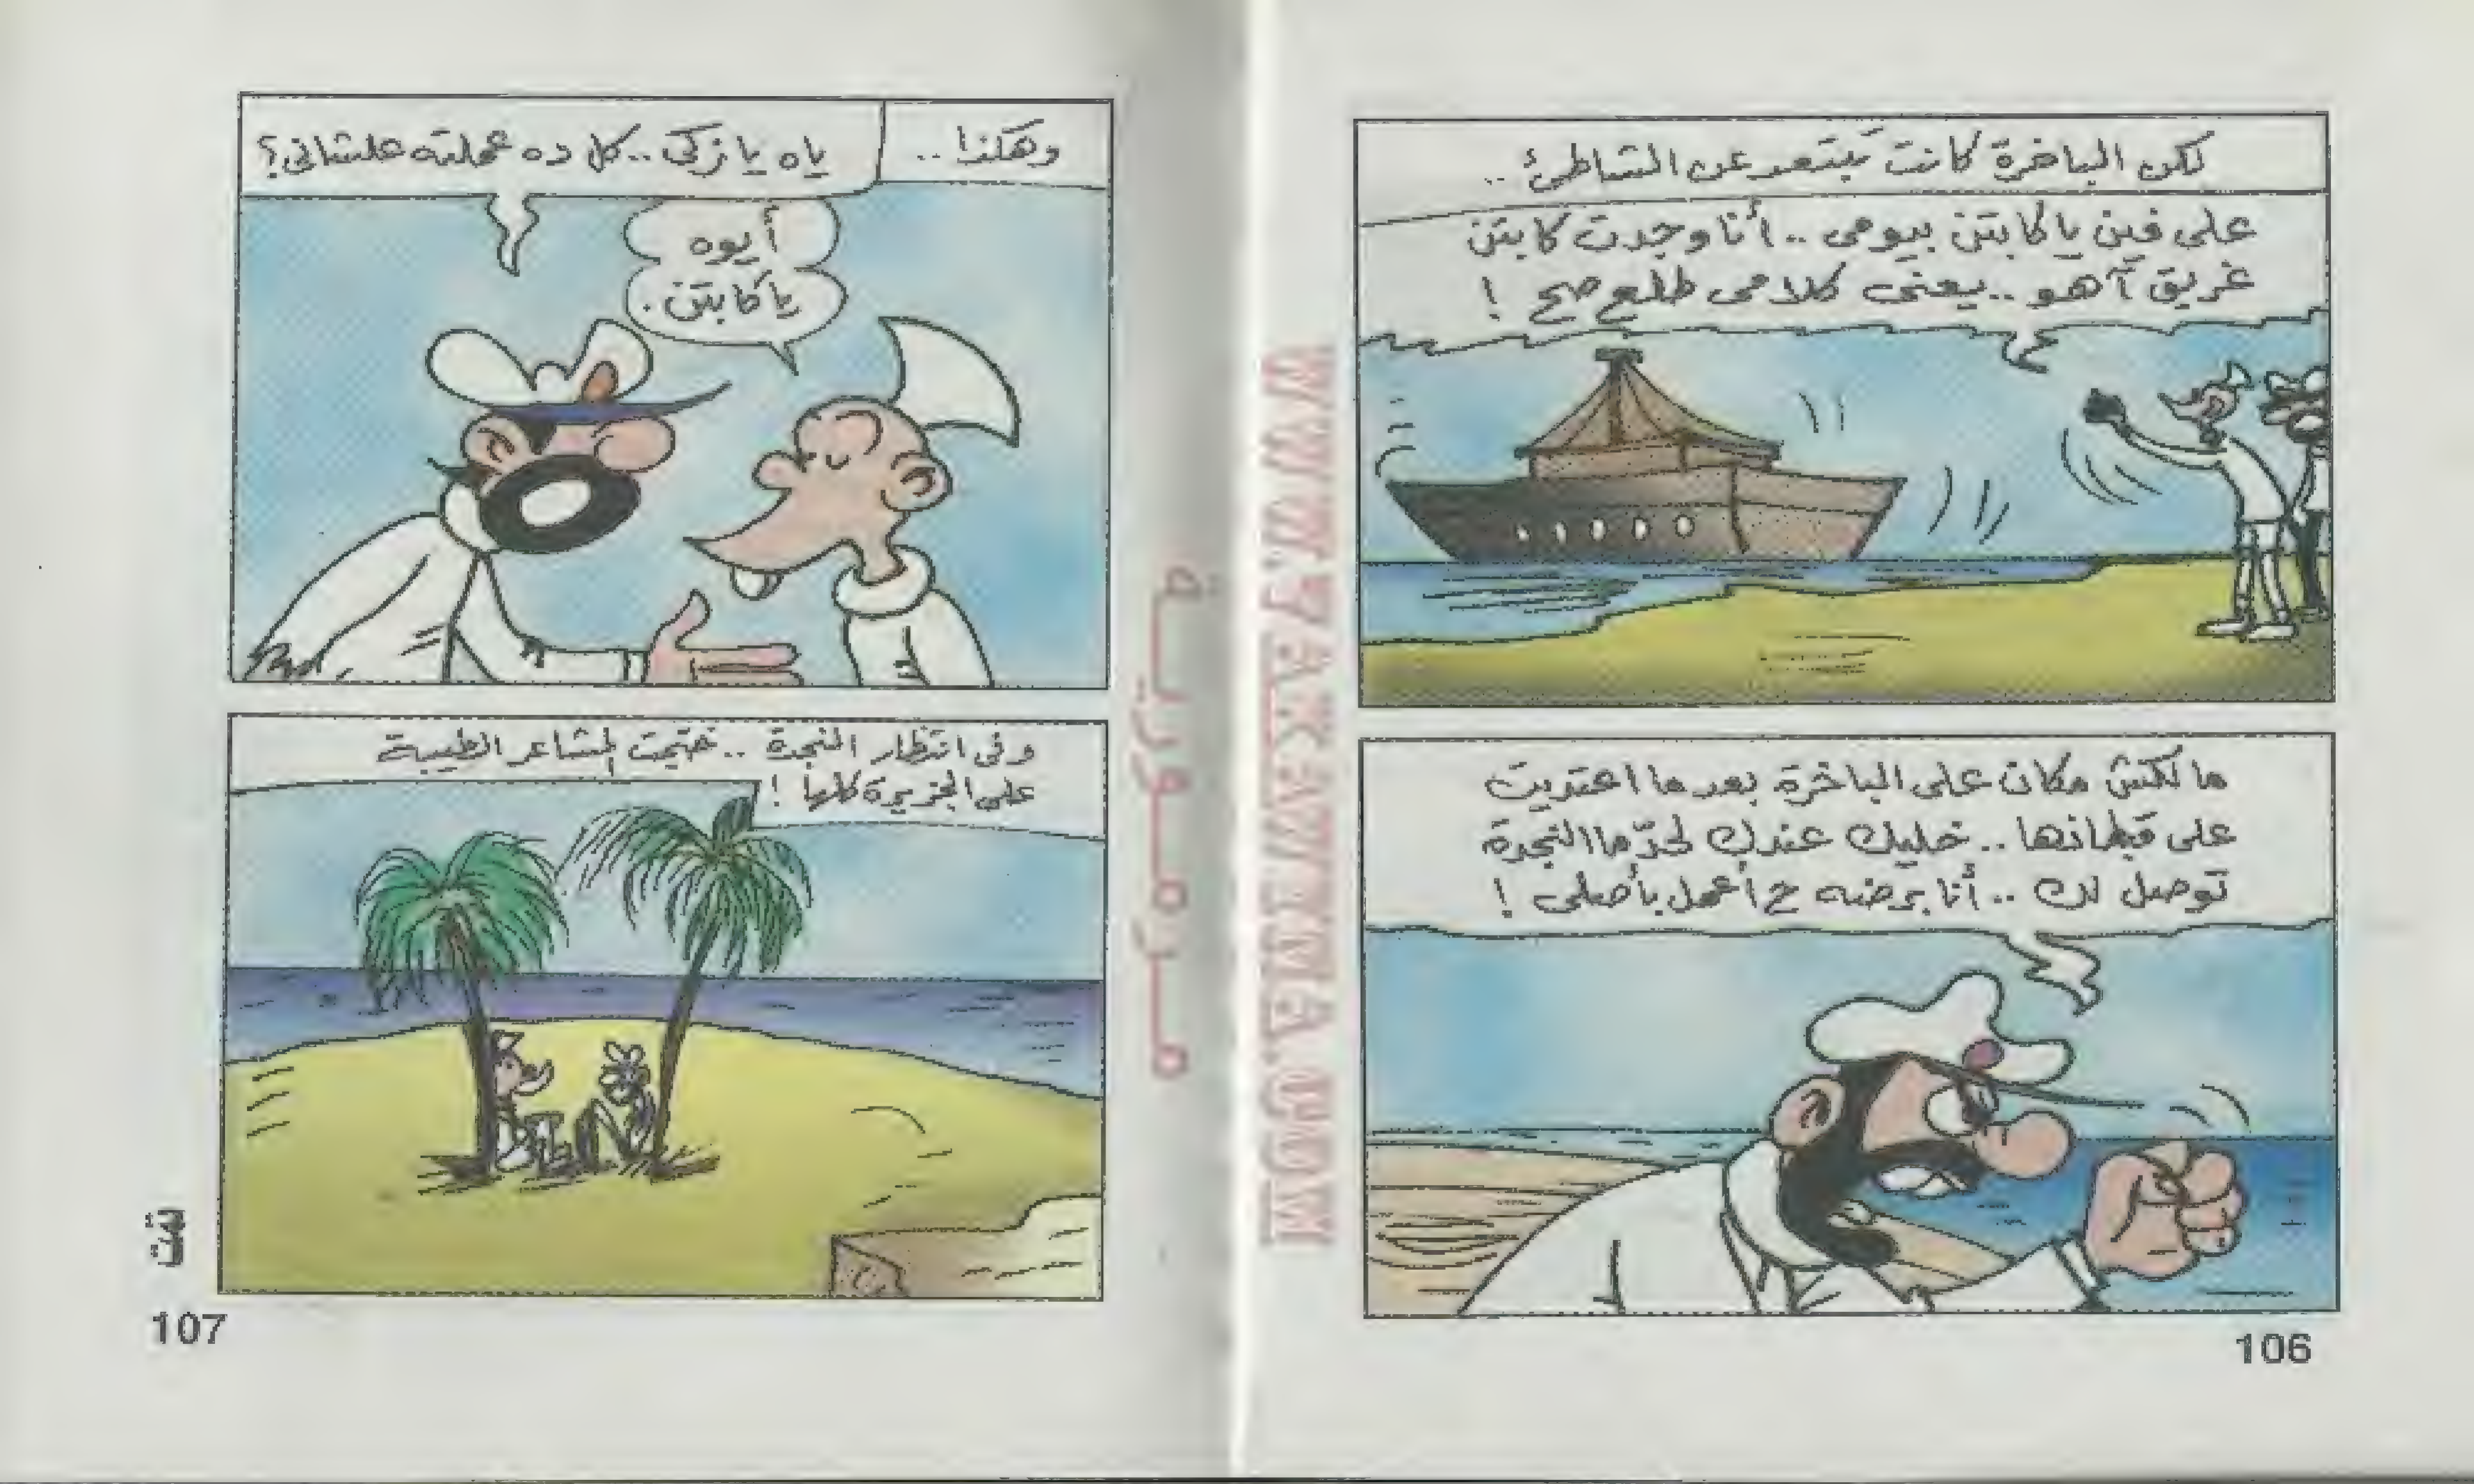 لكن الباخرة كانت تَبتعد عن الشاطئ ..
على فين يا كابتن بيومى .. أنا وجدت كابتن
غريق آهو .. يعنى كلامى طلع صح !
مالكش مكان على الباخرة بعد ما اعتديت
على قبطانها .. خليك عندك لحدّ ما النجدة
توصل لك .. أنا برضه ح أعمل بأصلى !
106
WWW.RAKAWENA.COM
مرمورية
وهكذا ..
ياه يا زكى .. كل ده عملته علشانى ؟
أيوه
يا كابتن .
وفى انتظار النجدة .. خيّمت المشاعر الطيبة
على الجزيرة كلها !
تمت
107